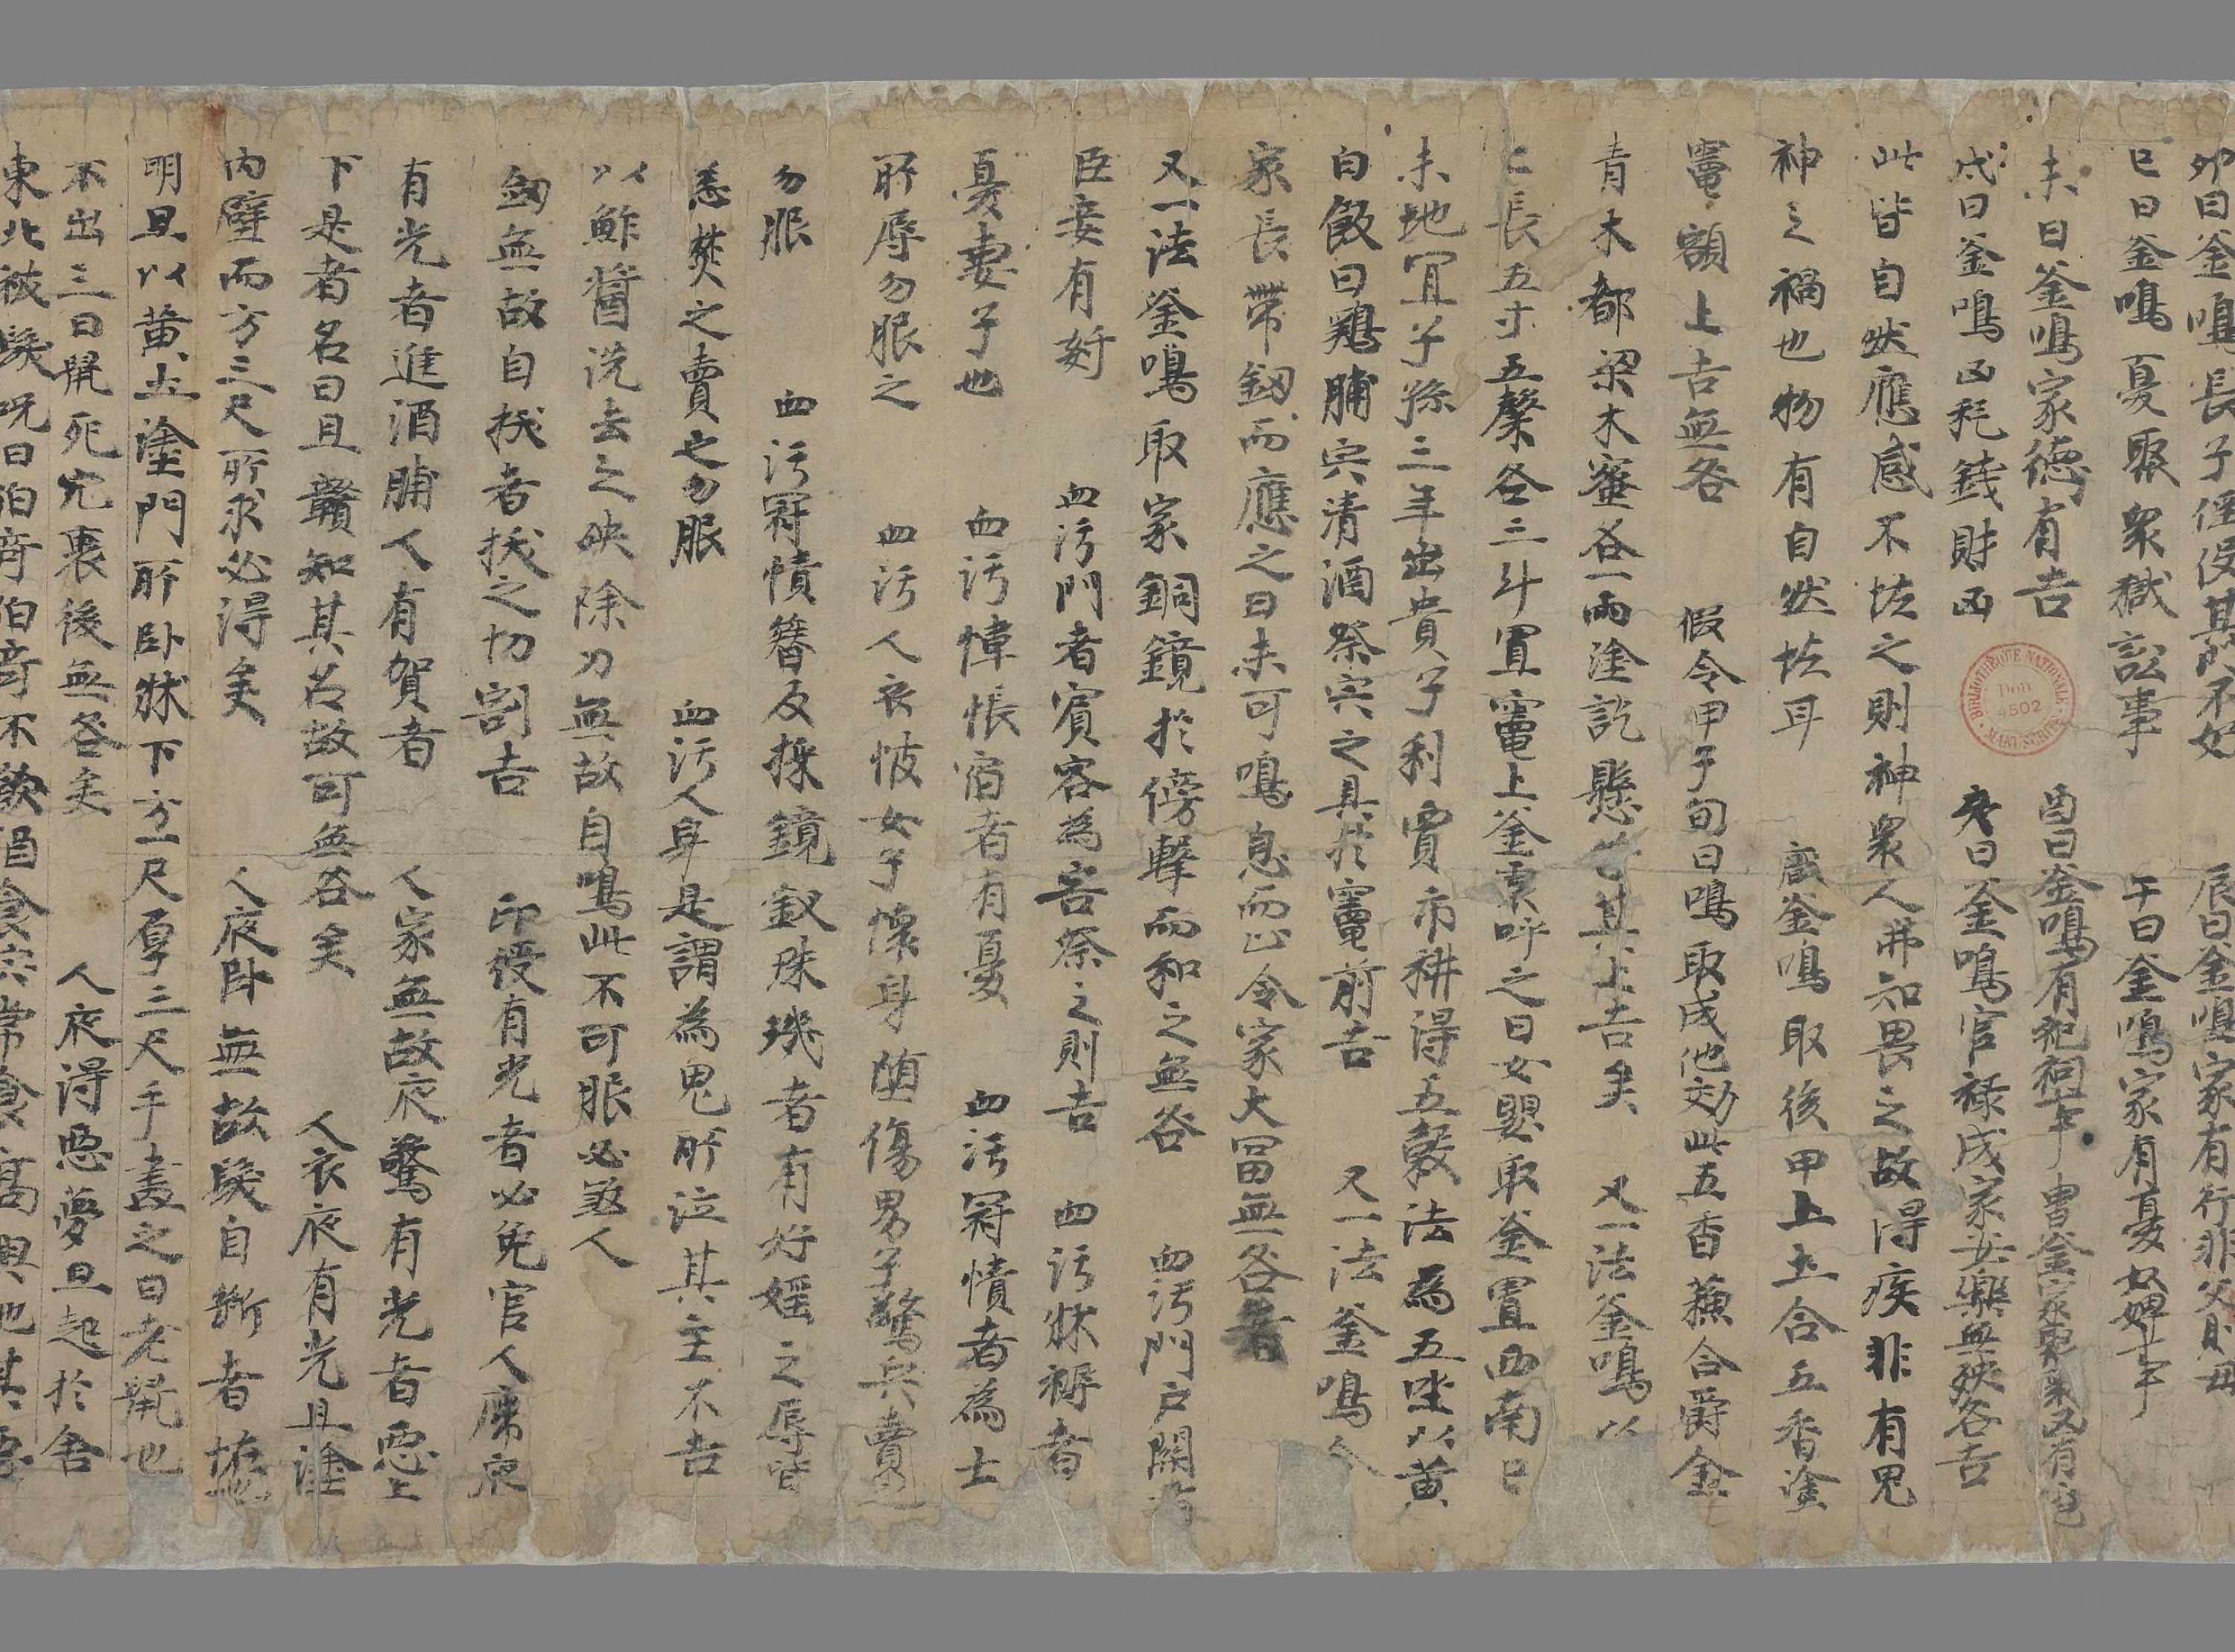 卯日釜鳴長子侄役其門不好 辰日釜鳴家有行非父則母
巳日釜鳴憂聚衆獄訟事 午日釜鳴家有憂奴婢事
未日釜鳴家德有吉 酉日釜鳴有犯祠事
戌日釜鳴凶耗錢財凶 亥日釜鳴官祿成家安樂無殃咎吉
此皆自然應感不怪之則神衆人弗知畏之故得疾非有鬼
神之禍也物有自然怪耳 厭釜鳴取後甲上土合五香塗
竈額上吉無咎 假令甲子旬日鳴取戌他効此五香蘓合爵金
青木都梁木蜜各一兩塗訖懸其上吉矣 又一法釜鳴以
長五寸五槃各三斗置竈上釜裏呼之曰女嬰取釜置西南
未地宜子孫三年出貴子利賈市耕得五穀法為五㘴以黄
白飯曰鷄脯宍清酒祭宍之具於竈前吉 又一法釜鳴令
家長帶釼而應之曰未可鳴息而止令家大冨無咎
又一法釜鳴取家銅鏡於傍擊而和之無咎 血污門户關
臣妾有奸 血污門者賔客為害祭之則吉 血污牀褥者
憂妻子也 血污幃帳宿者有憂 血污冠幘者為士
所辱勿服之 血污人衣帔女子懷身堕傷男子驚兵賣
勿服 血污冠幘簪及揲鏡釵珠璣者有好婬之辱皆
悉焚之賣之勿服 血污人身是謂為鬼所泣其主不吉
以鮓醬洗去之殃除刀無故自鳴此不可服必煞人
釼無故自拔者拔之切割吉 印綬有光者必免官人廉
有光者進酒脯人有賀者 人家無故夜驚有光者惡上
下是者名曰且贛知其名故可無咎矣 人衣夜有光且塗
内壁而方三尺所求必得矣 人夜卧無故髮自斷者
明旦以黄土塗門所卧牀下方一尺厚三尺手畫之曰老𣬉也
不出三日𣬉死穴裏後無咎矣 人夜得惡夢旦起於舍
東北被髮呪曰伯奇伯奇不飲酒食宍常食高興地其惡
BIBLIOTHÈQUE NATIONALE
Don
4502
MANUSCRITS